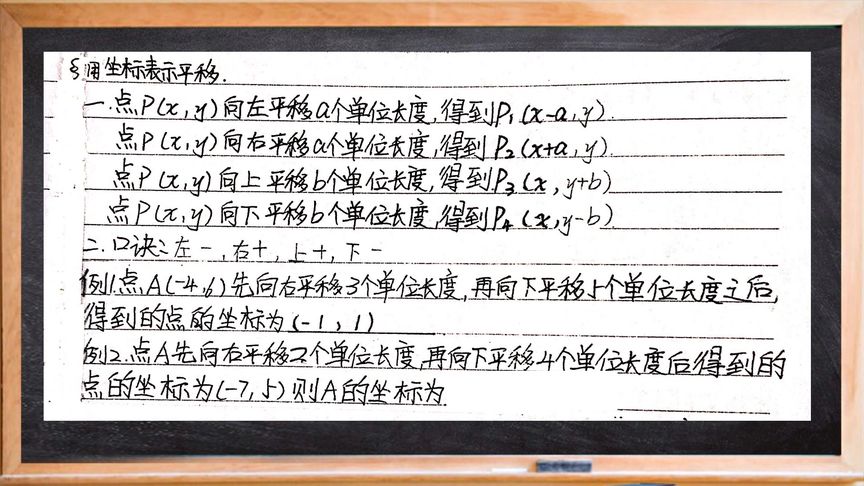 §用坐标表示平移.
一.点P(x,y)向左平移a个单位长度,得到P₁(x-a,y).
点P(x,y)向右平移a个单位长度,得到P₂(x+a,y).
点P(x,y)向上平移b个单位长度,得到P₃(x,y+b)
点P(x,y)向下平移b个单位长度,得到P₄(x,y-b).
二.口诀:左-,右+,上+,下-
例1.点A(-4,6)先向右平移3个单位长度,再向下平移5个单位长度之后,
得到的点的坐标为(-1,1)
例2.点A先向右平移2个单位长度,再向下平移4个单位长度后得到的
点的坐标为(-7,5)则A的坐标为